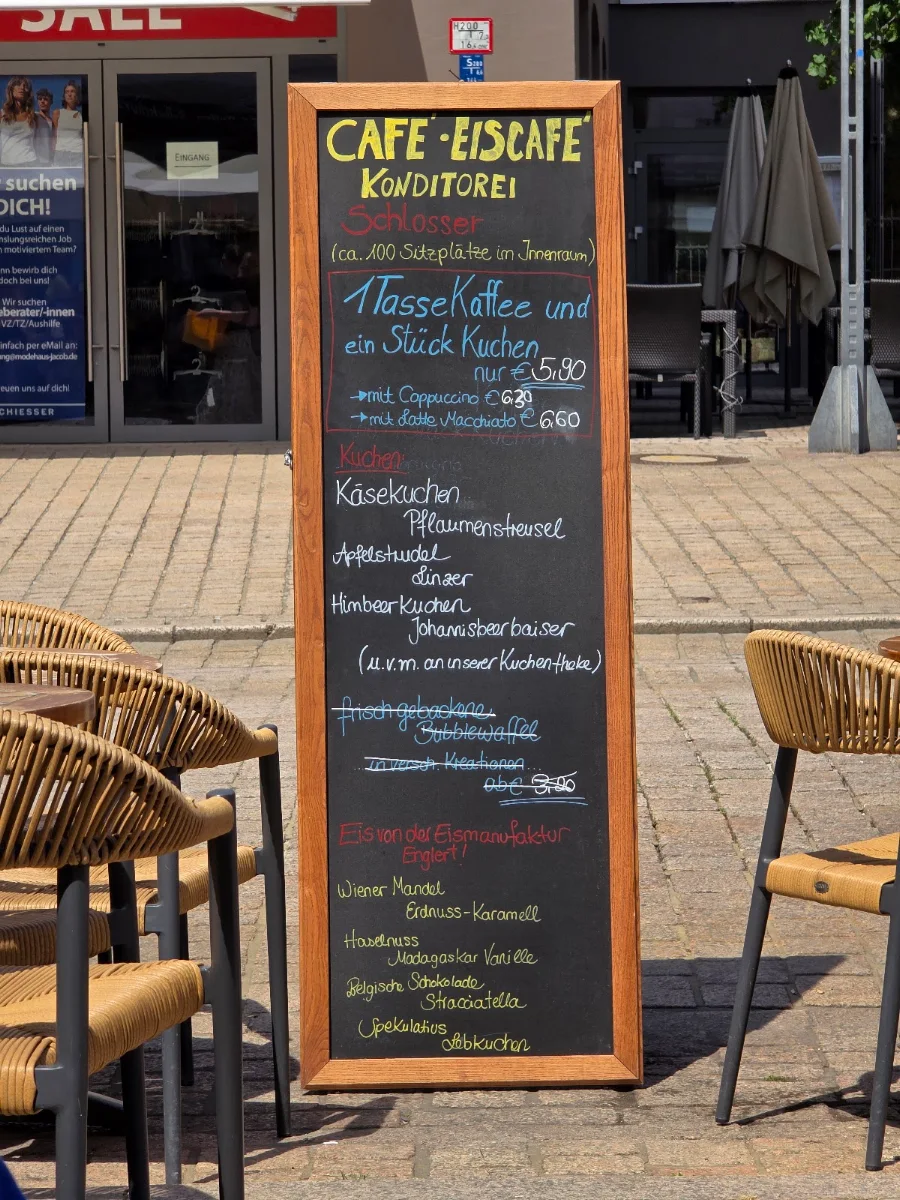 SALE
H200
7,
16,4
S200
EINGANG
suchen
DICH!
du Lust auf einen
Job
motiviertem Team?
nn bewirb dich
doch bei uns!
Wir suchen
eberater/-innen
VZ/TZ/Aushilfe
infach per eMail an:
ng@modehaus-jacob.de
reuen uns auf dich!
CHIESSER
CAFÉ · EISCAFÉ
KONDITOREI
Schlosser
(ca. 100 Sitzplätze im Innenraum)
1 Tasse Kaffee und
ein Stück Kuchen
nur € 5,90
→ mit Cappuccino € 6,30
→ mit Latte Macchiato € 6,60
Kuchen:
Käsekuchen
Pflaumenstreusel
Apfelstrudel
Linzer
Himbeerkuchen
Johannisbeerbaiser
(u.v.m. an unserer Kuchentheke)
frisch gebackene
Bubblewaffel
in versch. Kreationen...
ab €
Eis von der Eismanufaktur
Englert!
Wiener Mandel
Erdnuss-Karamell
Haselnuss
Madagaskar Vanille
Belgische Schokolade
Stracciatella
Spekulatius
Lebkuchen